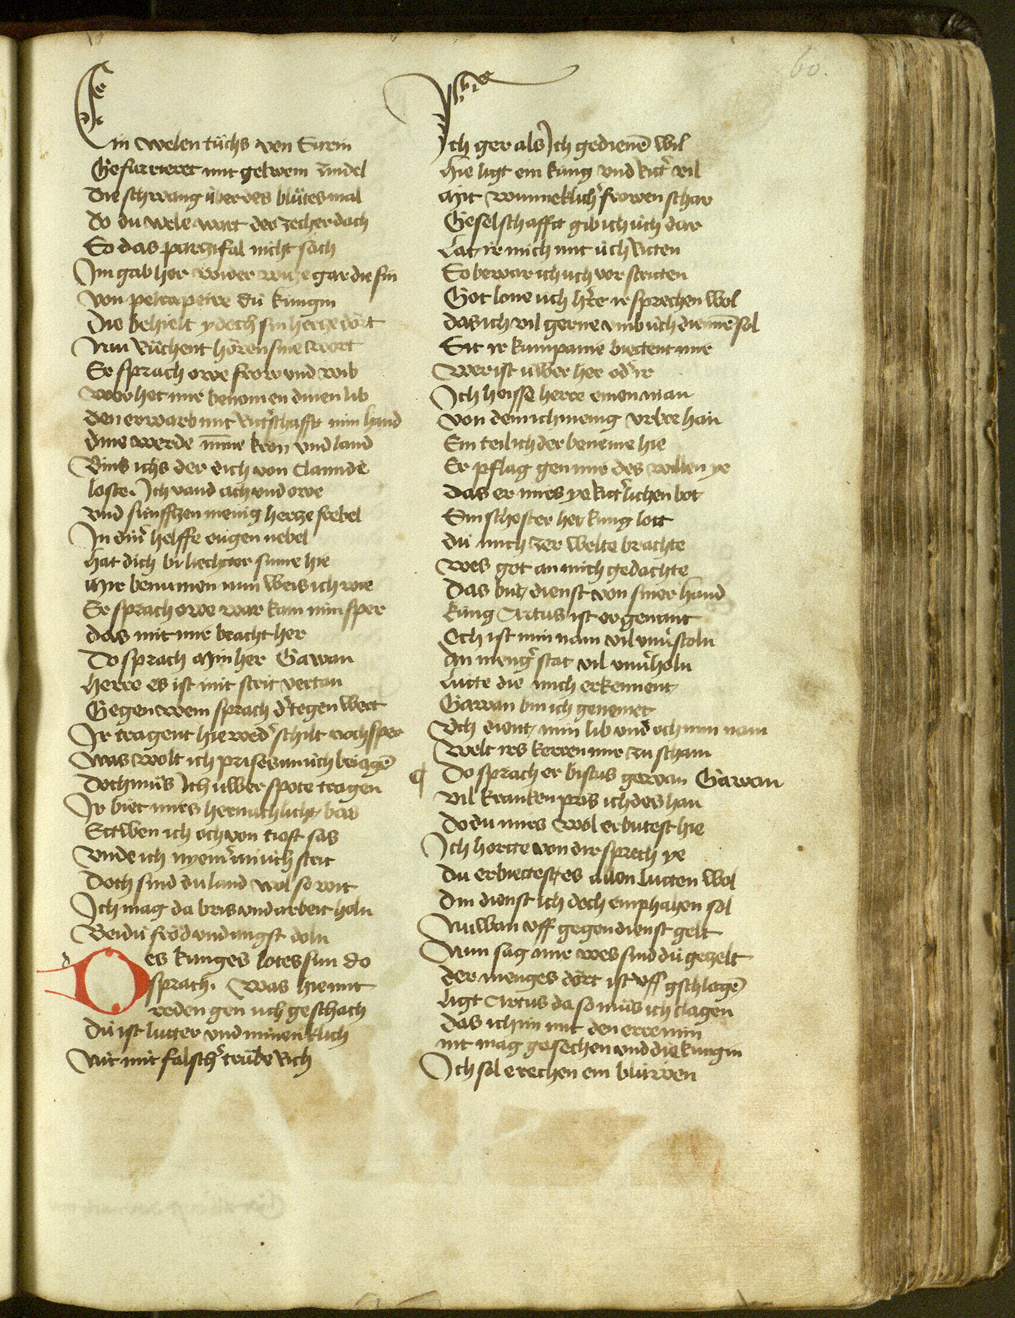 60.
Ein welen tüchs von Surin
Gefurrieret mit gelwem zindel
Die schwang über des blütes mal
Do du wele wart der zecher dach
So das parzifal nicht sach
Im gab her wider witze gar die sin
Von pelrapeire dü kungin
Die behielt ydoch sin hercze dört
Nun rüchent hören sine wort
Er sprach owe frow und wib
Wer het mir benomen dinen lib
den erwarb mit ritterschafft min hand
Dine werde mine kron und land
Bin ichs der dich von Clamide
loste. Ich vand ach und owe
und sünffzen menig hercze frebel
In diner helffe eugen nebel
hat dich bi liechter sunne hie
Mir benumen nun weis ich wie
Er sprach owe war kam min sper
das mit mir bracht her
Do sprach Min her Gawan
herre es ist mit strit vertan
Gegen wem sprach der tegen wert
Ir tragent hie weder schilt noch sper
Was wolt ich prises an üch beiagen
Doch müs Ich üwer spote tragen
Ir biet mirs hernach licht bas
Etwen ich och von tiost sas
Vinde ich nyemer an üch strit
Doch sind dü land wol so wit
Ich mag da bris und arbeit holn
Beidü fröd und angst doln
Des kunges lotes sun do
sprach. Was hie mit
reden gen üch geschach
Dü ist lutter und minenklich
Nit mit falscher trübe rich
Ich ger als Ich gedienen wil
hie ligt ein kung und ritter vil
Mit wunneklicher frowen schar
Geselschafft gib ich üch dar
Lat ir mich mit üch ritten
So bewar ich uch vor stritten
Got lone uch herre ir sprechen wol
das ich vil gerne umb üch dienen sol
Sit ir kumpanie bietent mir
Wer ist üwer her oder ir
Ich heisse herre einen man
Von dem ich menig urbor han
Ein teil ich der benenne hie
Er pflag gen mir des willen ye
Das er mirs ye ritterlichen bot
Sin schoster her kung lott
dü mich zer welte brachte
Wes got an mich gedachte
Das büt dienst von siner hand
Kung Artus ist er genant
Och ist min nam vil unverstoln
An menger stat vil unverholn
lütte die mich erkennent
Gawan bin ich genennet
Uch dient min lib und och min nam
Welt irs kerren mir zu scham
Do sprach er bistus gawan Gawan
Vil kranken pris ich des han
Do du mirs wol erbutest hie
Ich horte von dir sprech ye
Du erbiettest es allen lütten wol
Din dienst ich doch emphahen sol
Nuwan uff gegen dienst gelt
Nun sag mir wes sind dü gezelt
der menges dört ist uff gschlagen
ligt Artus da so müs ich clagen
das ich im mit den erren min
nit mag gesechen und die kungin
Ich sol e rechen ein blüwen